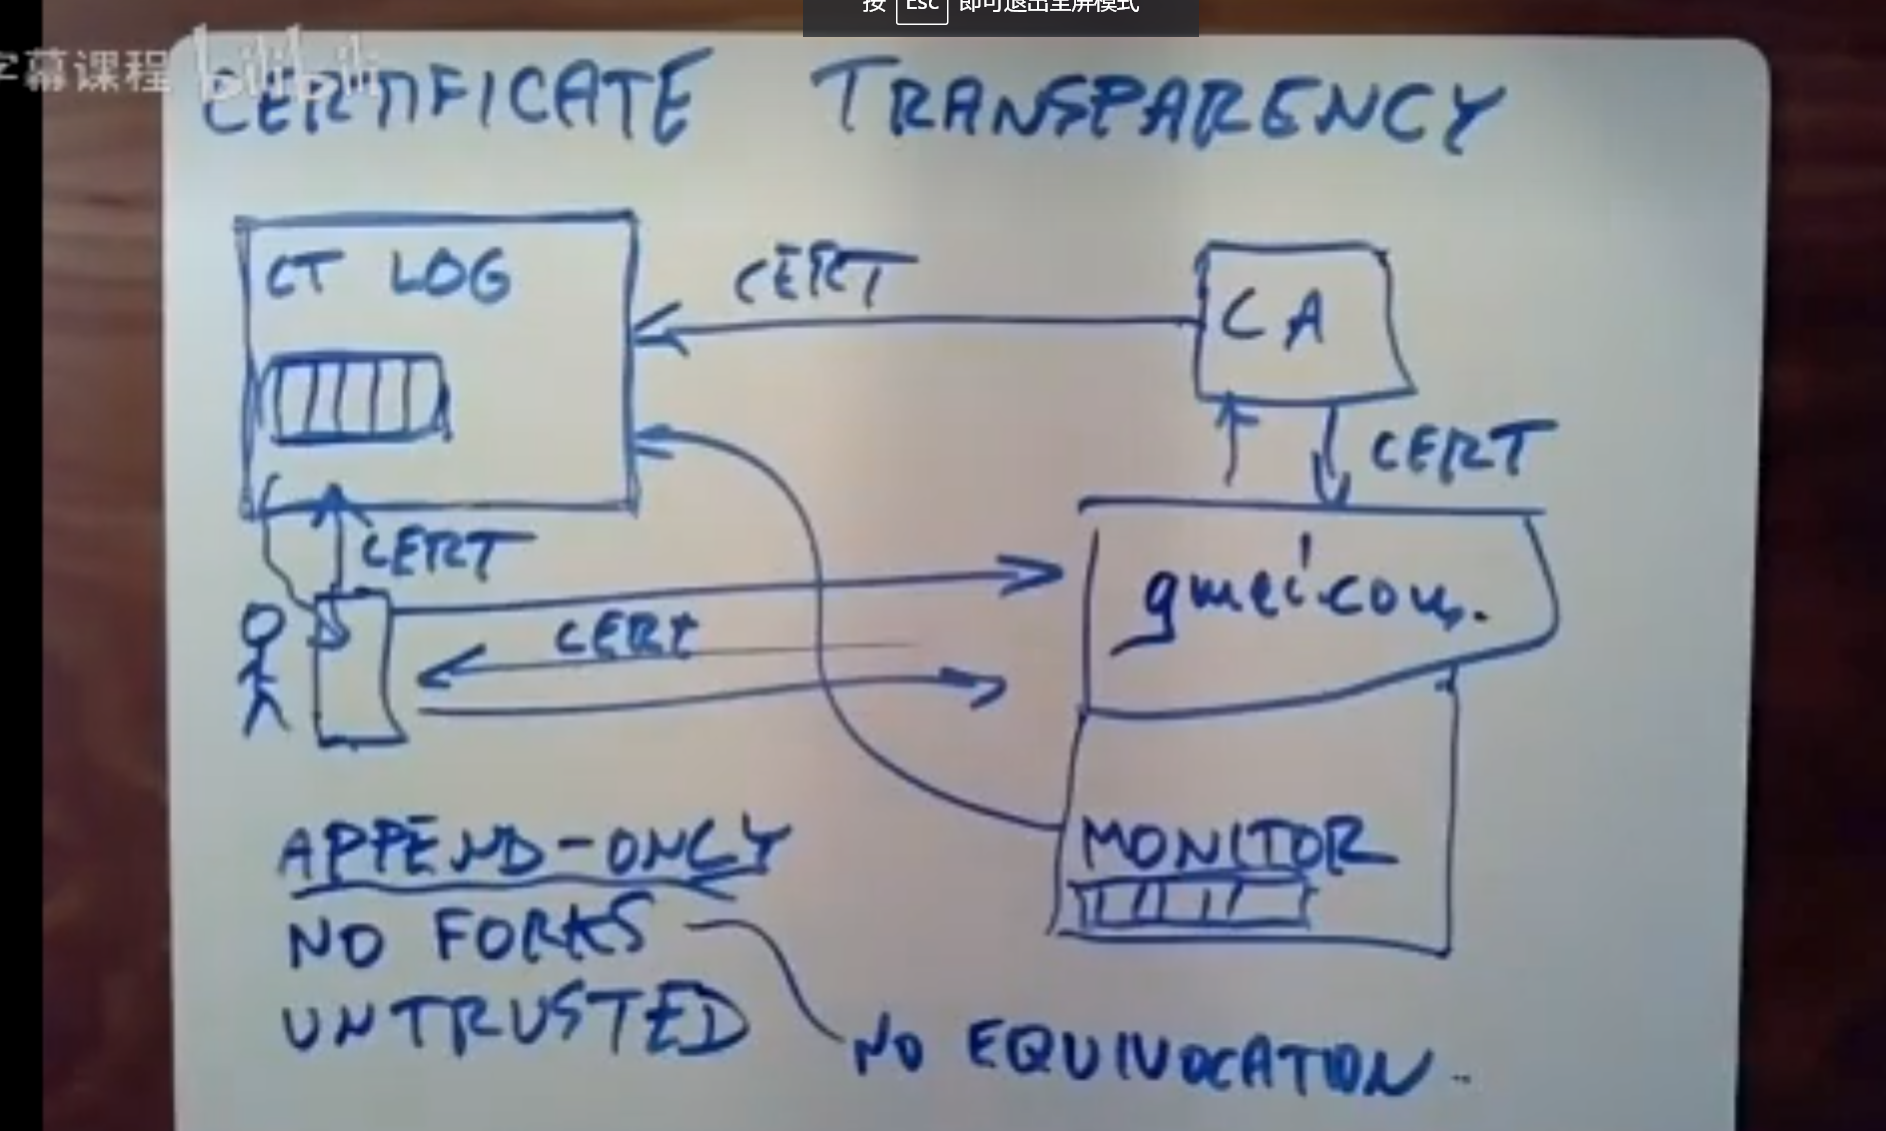 按 Esc 即可退出全屏模式
字幕课程 bilibili
CERTIFICATE TRANSPARENCY
CT LOG
CERT
CA
CERT
CERT
gmail.com.
CERT
MONITOR
APPEND-ONLY
NO FORKS
UNTRUSTED
NO EQUIVOCATION..